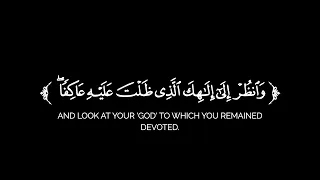 ﴿ وَٱنظُرْ إِلَىٰٓ إِلَـٰهِكَ ٱلَّذِى ظَلْتَ عَلَيْهِ عَاكِفًا ۖ ﴾
AND LOOK AT YOUR ‘GOD’ TO WHICH YOU REMAINED
DEVOTED.